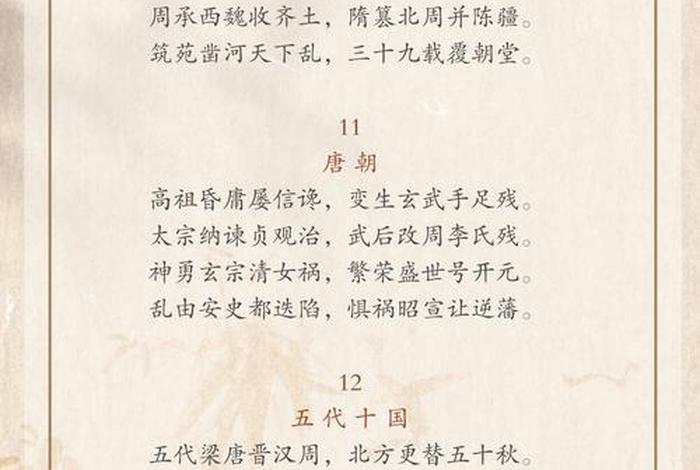 周承西魏收齐土，隋篡北周并陈疆。
筑苑凿河天下乱，三十九载覆朝堂。
11
唐朝
高祖昏庸屡信谗，变生玄武手足残。
太宗纳谏贞观治，武后改周李氏残。
神勇玄宗清女祸，繁荣盛世号开元。
乱由安史都迭陷，惧祸昭宣让逆藩。
12
五代十国
五代梁唐晋汉周，北方更替五十秋。